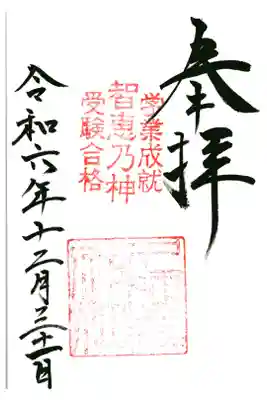 奉拝
学業成就
智恵乃神
受験合格
令和六年十二月三十一日